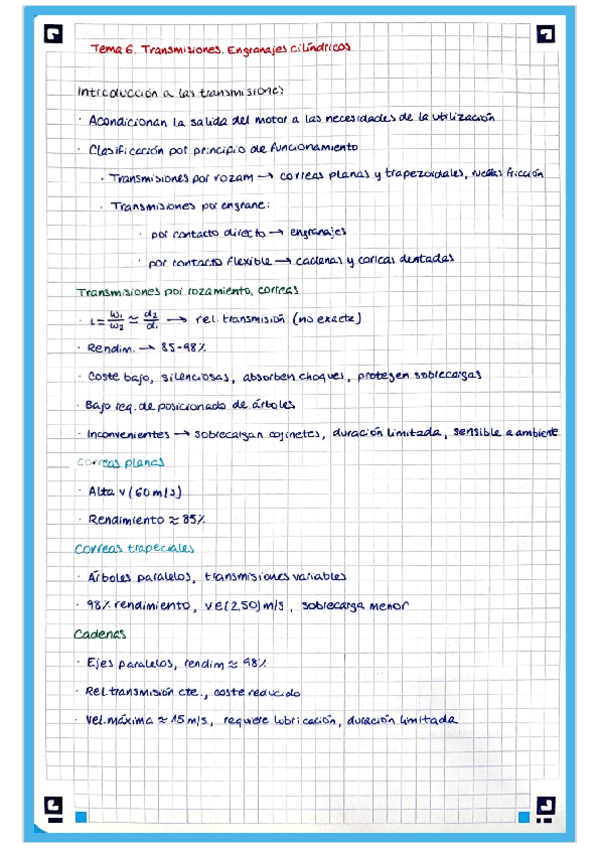 Tema 6. Transmisiones. Engranajes cilíndricos
Introducción a las transmisiones
· Acondicionan la salida del motor a las necesidades de la utilización
· Clasificación por principio de funcionamiento
· Transmisiones por rozam → correas planas y trapezoidales, ruedas fricción
· Transmisiones por engrane:
· por contacto directo → engranajes
· por contacto flexible → cadenas y correas dentadas
Transmisiones por rozamiento, correas
· i = ω₁/ω₂ ≈ d₂/d₁ → rel. transmisión (no exacte)
· Rendim. → 85-98%
· Coste bajo, silenciosas, absorben choques, protegen sobrecargas
· Bajo req. de posicionado de árboles
· Inconvenientes → sobrecargan cojinetes, duración limitada, sensible a ambiente
Correas planas
· Alta v (60 m/s)
· Rendimiento ≈ 85%
Correas trapeciales
· Árboles paralelos, transmisiones variables
· 98% rendimiento, v∈(2,50) m/s, sobrecarga menor
Cadenas
· Ejes paralelos, rendim ≈ 98%
· Rel. transmisión cte., coste reducido
· Vel. máxima ≈ 15 m/s, requiere lubricación, duración limitada